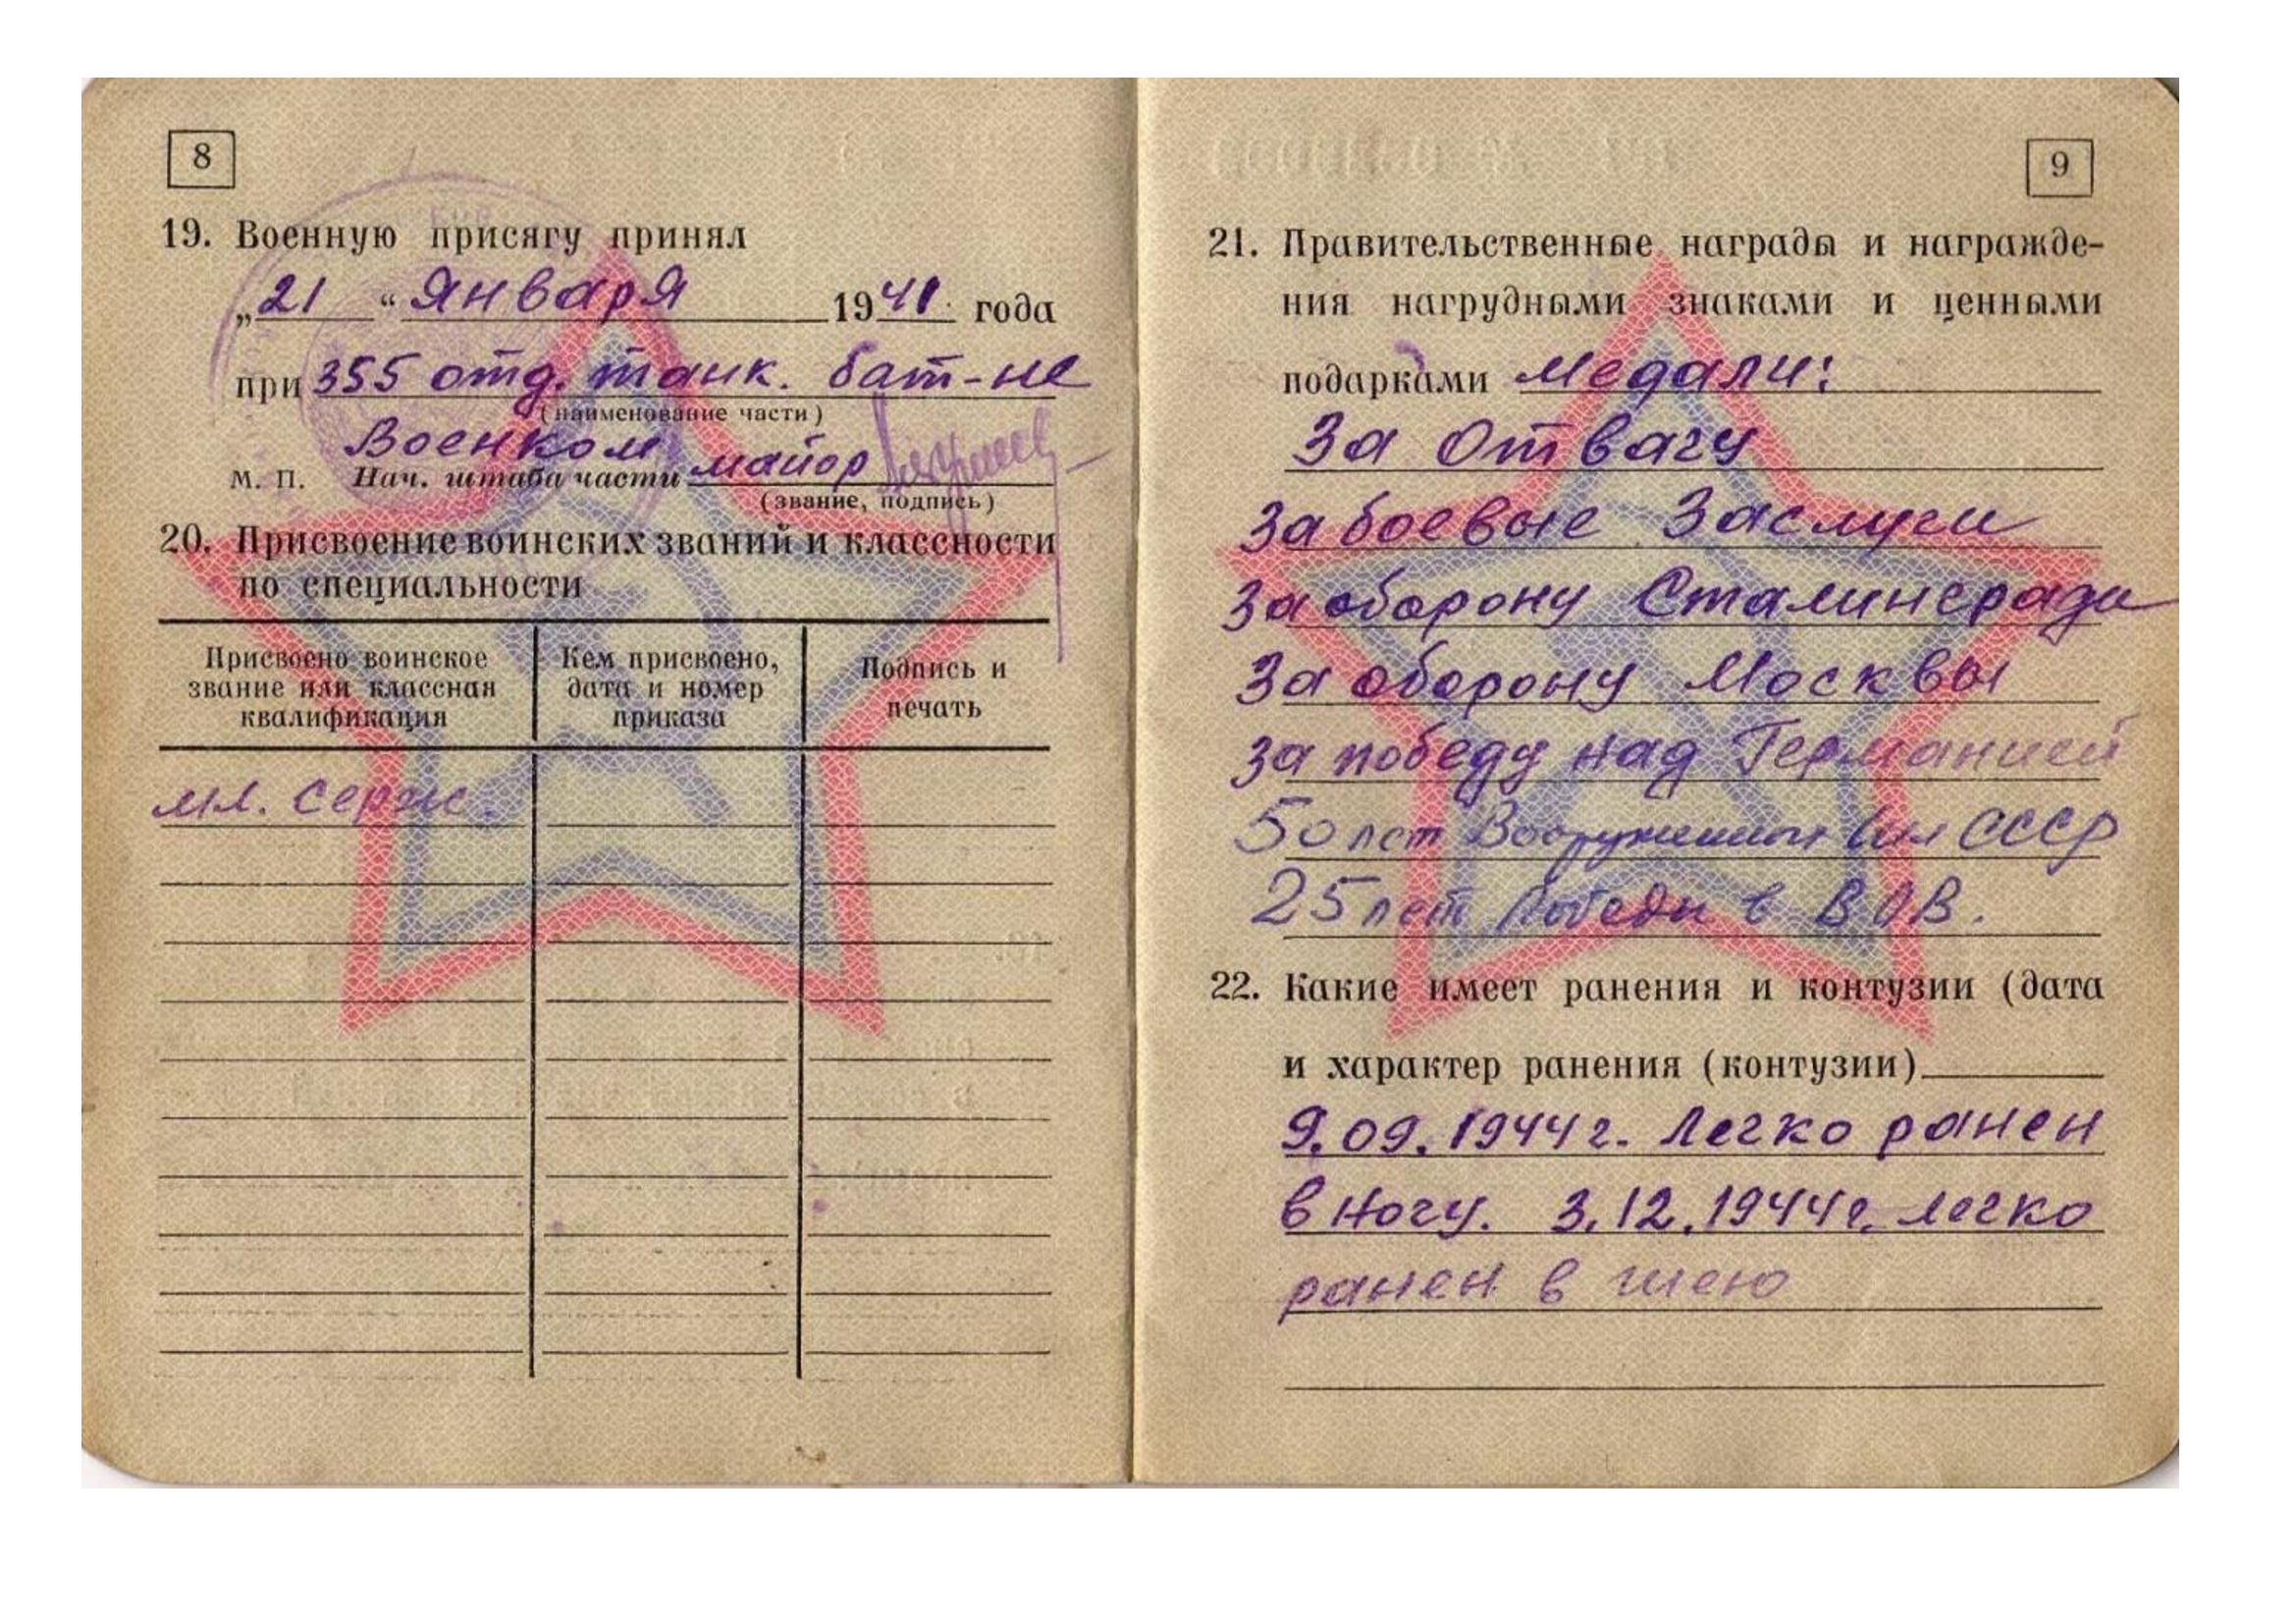 8
19. Военную присягу принял
„21“ Января 1941 года
при 355 отд. танк. бат-не
(наименование части)
Военком
М. П. Нач. штаба части майор
(звание, подпись)
20. Присвоение воинских званий и классности
по специальности
Присвоено воинское
звание или классная
квалификация
Кем присвоено,
дата и номер
приказа
Подпись и
печать
мл. серж.
9
21. Правительственные награды и награжде-
ния нагрудными знаками и ценными
подарками Медали:
За Отвагу
За боевые Заслуги
За оборону Сталинграда
За оборону Москвы
За победу над Германией
50 лет Вооруженных Сил СССР
25 лет Победы в ВОВ.
22. Какие имеет ранения и контузии (дата
и характер ранения (контузии)
9.09.1944г. Легко ранен
в ногу. 3.12.1944г. легко
ранен в шею